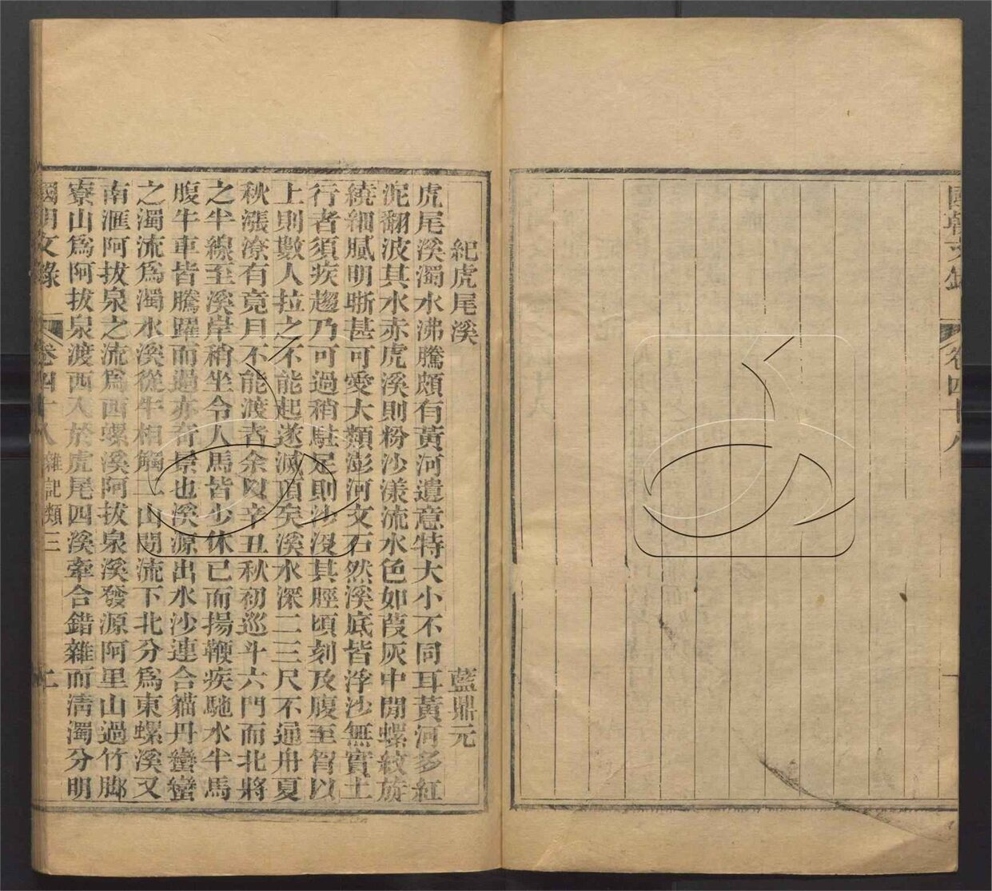 國朝文錄 卷四十八
紀虎尾溪 藍鼎元
虎尾溪濁水沸騰頗有黃河遺意特大小不同耳黃河多紅
泥翻波其水赤虎溪則粉沙漾流水色如葭灰中間螺紋旋
繞細膩明晰甚可愛大類澎河文石然溪底皆浮沙無實土
行者須疾趨乃可過稍駐足則沙沒其脛頃刻及腹至胷以
上則數人拉之不能起遂滅頂矣溪水深二三尺不通舟夏
秋漲潦有竟月不能渡者余以辛丑秋初巡斗六門而北將
之半線至溪岸稍坐令人馬皆少休已而揚鞭疾馳水半馬
腹牛車皆騰躍而過亦奇景也溪源出水沙連合貓丹蠻蠻
之濁流為濁水溪從牛相觸二山間流下北分為東螺溪又
南滙阿拔泉之流為西螺溪阿拔泉溪發源阿里山過竹腳
寮山為阿拔泉渡西入於虎尾四溪牽合錯雜而清濁分明
國朝文錄 卷四十八 雜記類三 二